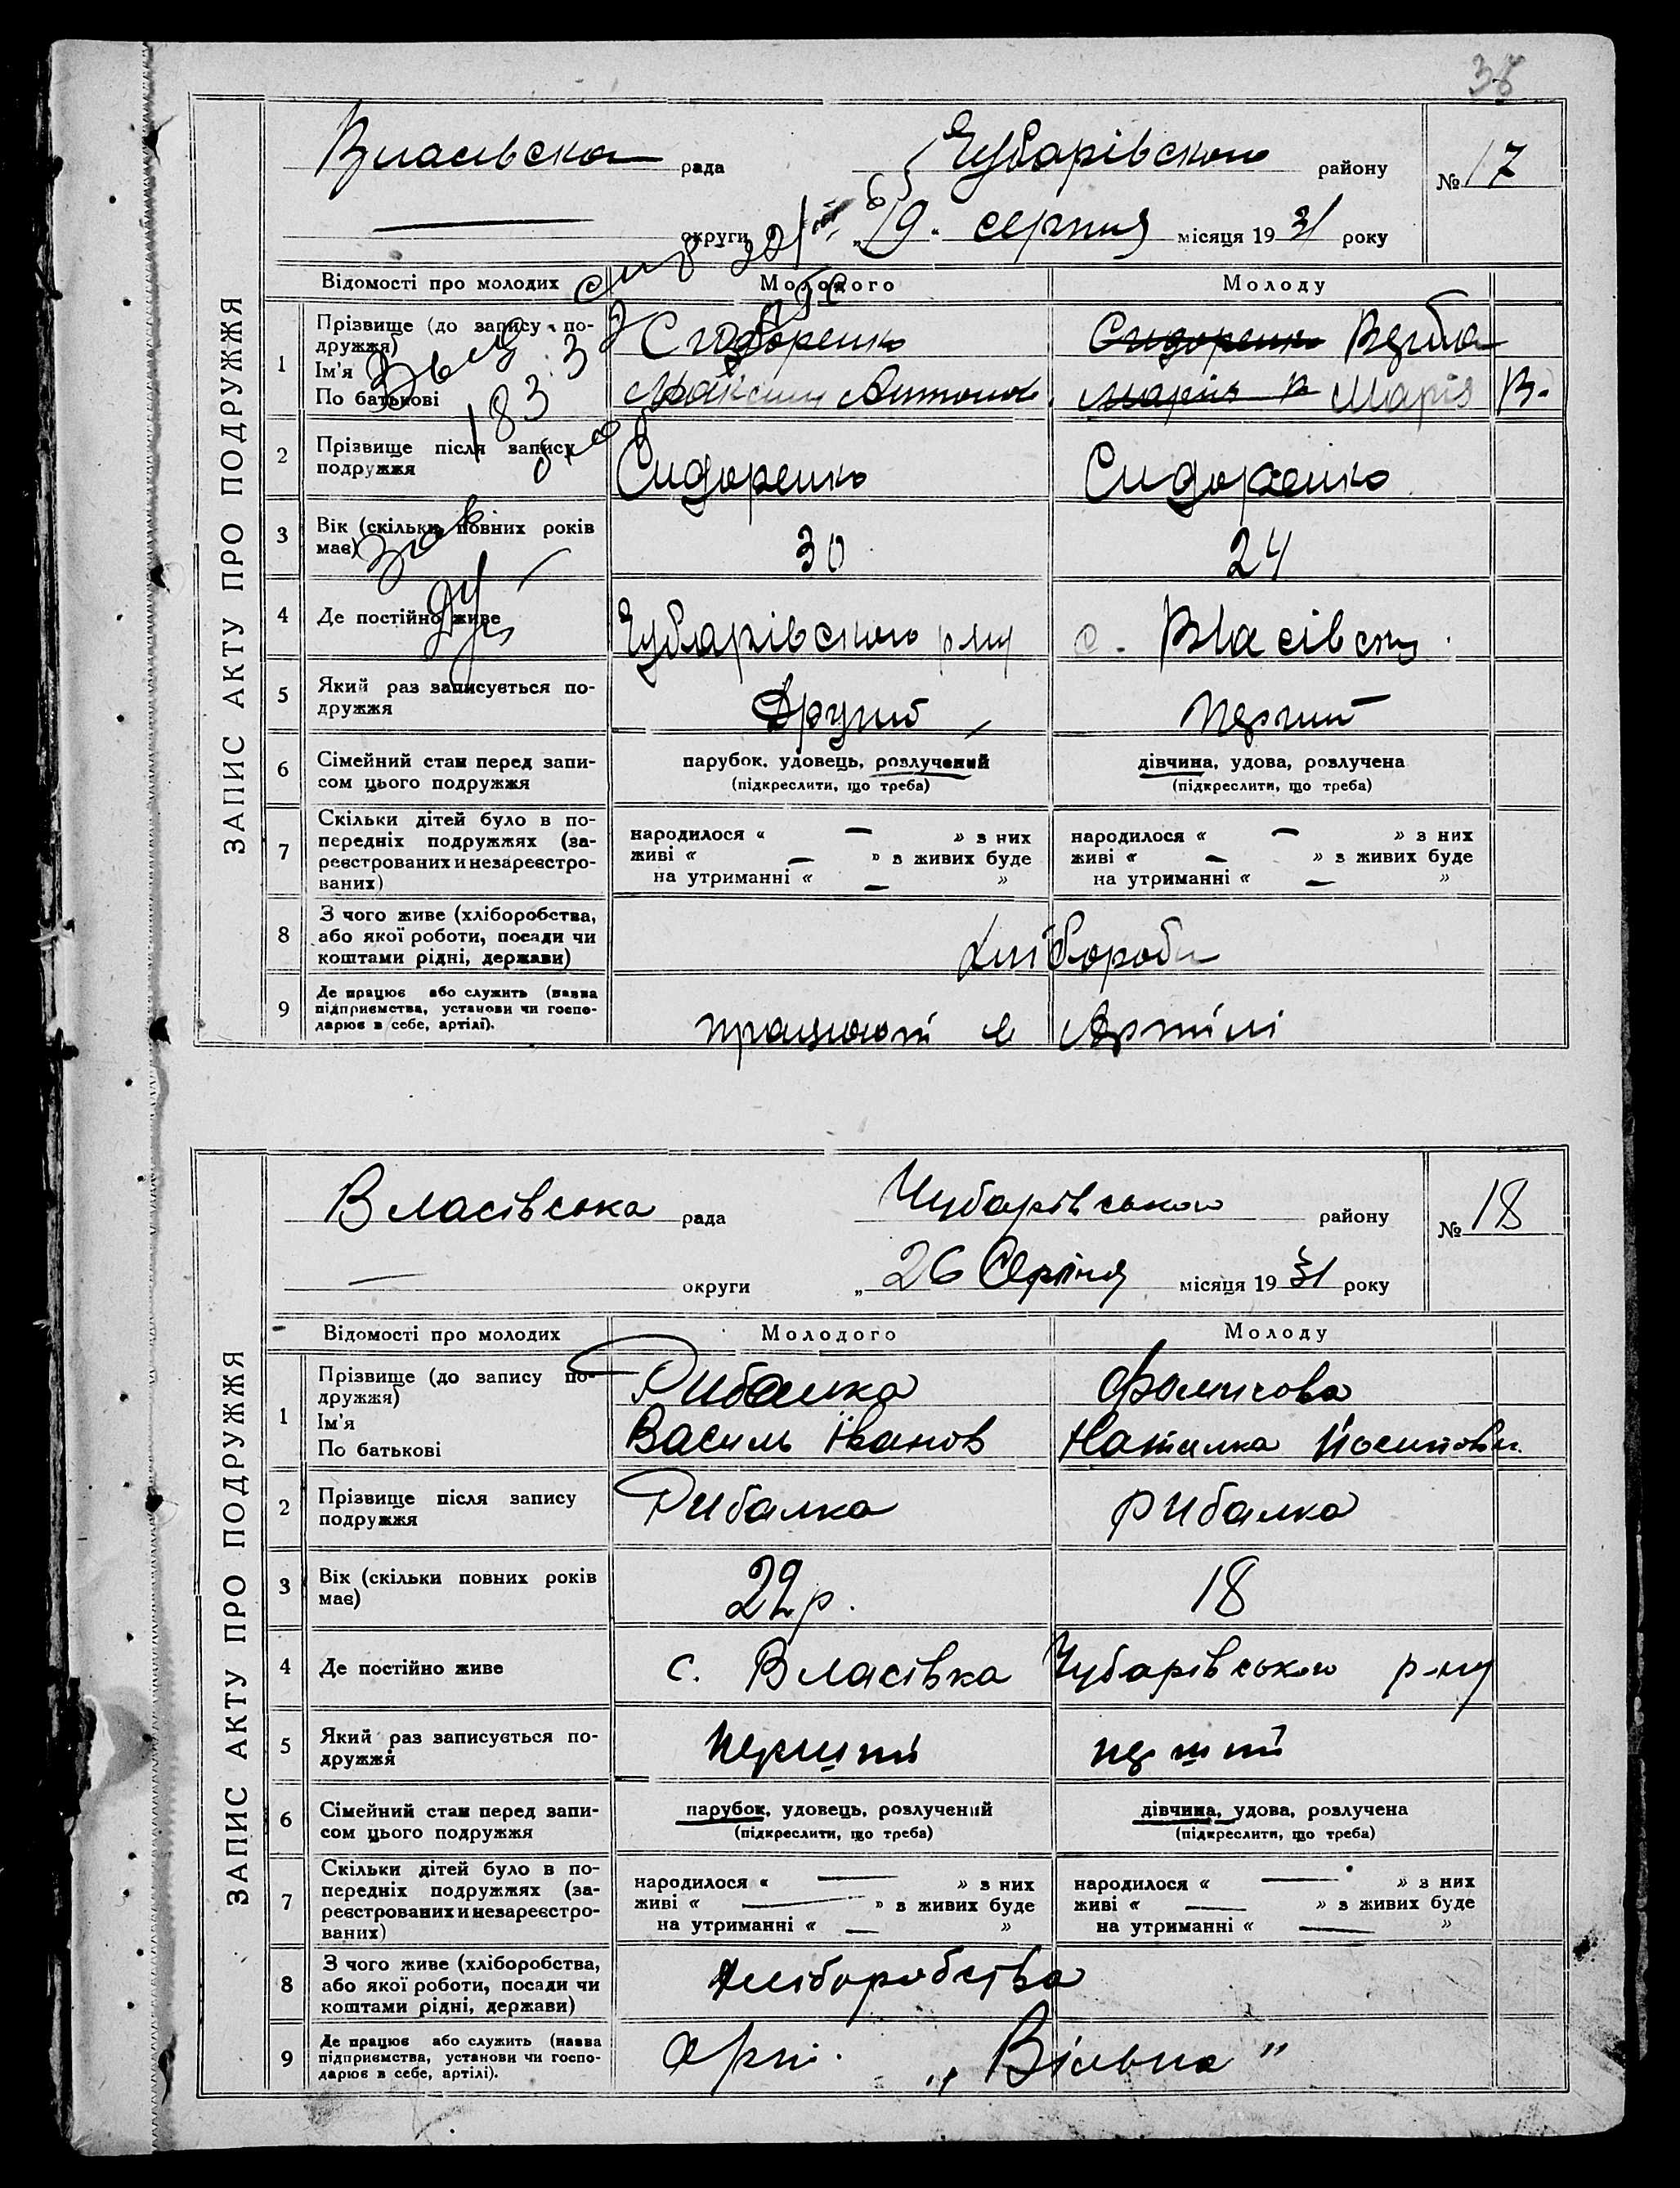 38
Власівська рада Чубарівського району № 17
округи „19. серпня місяця 1931 року
ЗАПИС АКТУ ПРО ПОДРУЖЖЯ
Відомості про молодих Молодого Молоду
1 Прізвище (до запису по-
дружжя)
Ім'я
По батькові
Сидоренко Сидоренко Верба
Максим Антонов. Марія В Марія В.
2 Прізвище після запису
подружжя
Сидоренко Сидоренко
3 Вік (скільки повних років
має)
30 24
4 Де постійно живе Чубарівського р-ну с. Власівку
5 Який раз записується по-
дружжя
Другий перший
6 Сімейний стан перед запи-
сом цього подружжя
парубок, удовець, розлучений дівчина, удова, розлучена
(підкреслити, що треба) (підкреслити, що треба)
7 Скільки дітей було в по-
передніх подружжях (за-
реєстрованих и незареєстро-
ваних)
народилося « — » з них народилося « — » з них
живі « — » з живих буде живі « — » з живих буде
на утриманні « — » на утриманні « — »
8 З чого живе (хліборобства,
або якої роботи, посади чи
коштами рідні, держави)
хлібороби
9 Де працює або служить (назва
підприємства, установи чи госпо-
дарює в себе, артілі).
працюють в Артілі
Власівська рада Чубарівського району № 18
— округи „26 Серпня місяця 1931 року
ЗАПИС АКТУ ПРО ПОДРУЖЖЯ
Відомості про молодих Молодого Молоду
1 Прізвище (до запису по-
дружжя)
Ім'я
По батькові
Рибалка Фомичова
Василь Іванов Наталка Йосиповн.
2 Прізвище після запису
подружжя
Рибалка Рибалка
3 Вік (скільки повних років
має)
22 р. 18
4 Де постійно живе с. Власівка Чубарівського р-ну
5 Який раз записується по-
дружжя
перший перший
6 Сімейний стан перед запи-
сом цього подружжя
парубок, удовець, розлучений дівчина, удова, розлучена
(підкреслити, що треба) (підкреслити, що треба)
7 Скільки дітей було в по-
передніх подружжях (за-
реєстрованих и незареєстро-
ваних)
народилося « — » з них народилося « — » з них
живі « — » з живих буде живі « — » з живих буде
на утриманні « — » на утриманні « — »
8 З чого живе (хліборобства,
або якої роботи, посади чи
коштами рідні, держави)
хліборобства
9 Де працює або служить (назва
підприємства, установи чи госпо-
дарює в себе, артілі).
Арт. „Вільна"